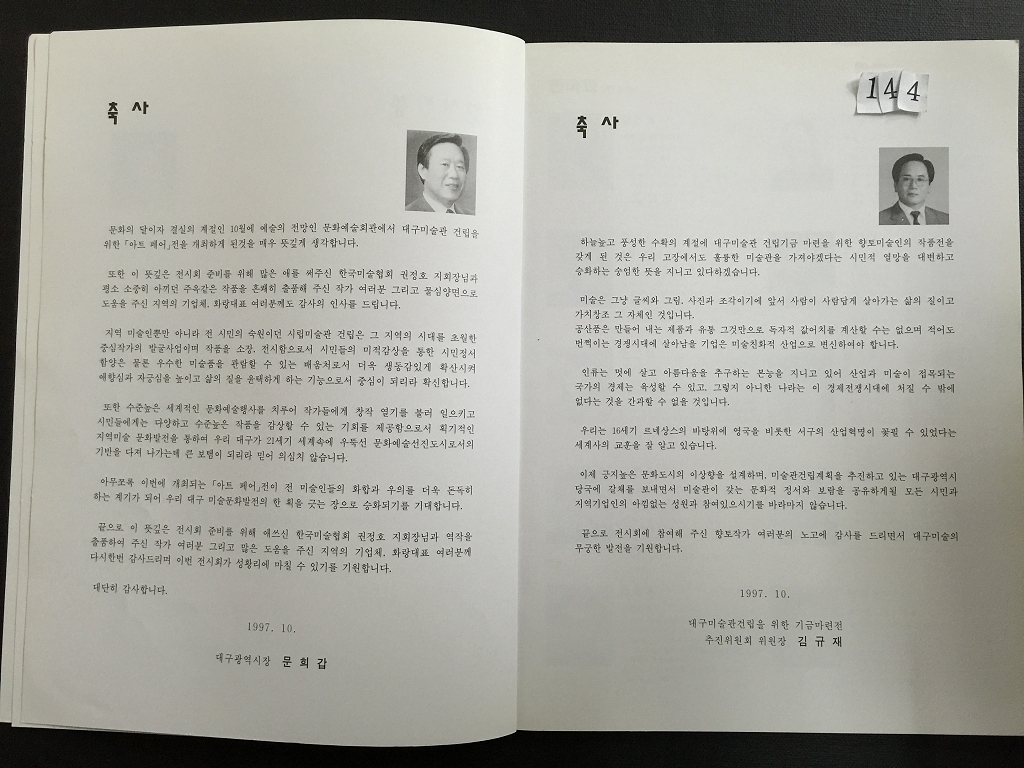 축 사
문화의 달이자 결실의 계절인 10월에 예술의 전망인 문화예술회관에서 대구미술관 건립을
위한 「아트 페어」전을 개최하게 된것을 매우 뜻깊게 생각합니다.
또한 이 뜻깊은 전시회 준비를 위해 많은 애를 써주신 한국미술협회 권정호 지회장님과
평소 소중히 아끼던 주옥같은 작품을 흔쾌히 출품해 주신 작가 여러분 그리고 물심양면으로
도움을 주신 지역의 기업체, 화랑대표 여러분께도 감사의 인사를 드립니다.
지역 미술인뿐만 아니라 전 시민의 숙원이던 시립미술관 건립은 그 지역의 시대를 초월한
중심작가의 발굴사업이며 작품을 소장, 전시함으로서 시민들의 미적감상을 통한 시민정서
함양은 물론 우수한 미술품을 관람할 수 있는 배움처로서 더욱 생동감있게 확산시켜
애향심과 자긍심을 높이고 삶의 질을 윤택하게 하는 기능으로서 중심이 되리라 확신합니다.
또한 수준높은 세계적인 문화예술행사를 치루어 작가들에게 창작 열기를 불러 일으키고
시민들에게는 다양하고 수준높은 작품을 감상할 수 있는 기회를 제공함으로서 획기적인
지역미술 문화발전을 통하여 우리 대구가 21세기 세계속에 우뚝선 문화예술선진도시로서의
기반을 다져 나가는데 큰 보탬이 되리라 믿어 의심치 않습니다.
아무쪼록 이번에 개최되는 「아트 페어」전이 전 미술인들의 화합과 우의를 더욱 돈독히
하는 계기가 되어 우리 대구 미술문화발전의 한 획을 긋는 장으로 승화되기를 기대합니다.
끝으로 이 뜻깊은 전시회 준비를 위해 애쓰신 한국미술협회 권정호 지회장님과 역작을
출품하여 주신 작가 여러분 그리고 많은 도움을 주신 지역의 기업체, 화랑대표 여러분께
다시한번 감사드리며 이번 전시회가 성황리에 마칠 수 있기를 기원합니다.
대단히 감사합니다.
1997. 10.
대구광역시장 문 희 갑
144
축 사
하늘높고 풍성한 수확의 계절에 대구미술관 건립기금 마련을 위한 향토미술인의 작품전을
갖게 된 것은 우리 고장에서도 훌륭한 미술관을 가져야겠다는 시민적 열망을 대변하고
승화하는 숭엄한 뜻을 지니고 있다하겠습니다.
미술은 그냥 글씨와 그림, 사진과 조각이기에 앞서 사람이 사람답게 살아가는 삶의 질이고
가치창조 그 자체인 것입니다.
공산품은 만들어 내는 제품과 유통 그것만으로 독자적 값어치를 계산할 수는 없으며 적어도
번쩍이는 경쟁시대에 살아남을 기업은 미술친화적 산업으로 변신하여야 합니다.
인류는 멋에 살고 아름다움을 추구하는 본능을 지니고 있어 산업과 미술이 접목되는
국가의 경제는 육성할 수 있고, 그렇지 아니한 나라는 이 경제전쟁시대에 처질 수 밖에
없다는 것을 간과할 수 없을 것입니다.
우리는 16세기 르네상스의 바탕위에 영국을 비롯한 서구의 산업혁명이 꽃필 수 있었다는
세계사의 교훈을 잘 알고 있습니다.
이제 긍지높은 문화도시의 이상향을 설계하며, 미술관건립계획을 추진하고 있는 대구광역시
당국에 갈채를 보내면서 미술관이 갖는 문화적 정서와 보람을 공유하게될 모든 시민과
지역기업인의 아낌없는 성원과 참여있으시기를 바라마지 않습니다.
끝으로 전시회에 참여해 주신 향토작가 여러분의 노고에 감사를 드리면서 대구미술의
무궁한 발전을 기원합니다.
1997. 10.
대구미술관건립을 위한 기금마련전
추진위원회 위원장 김 규 재